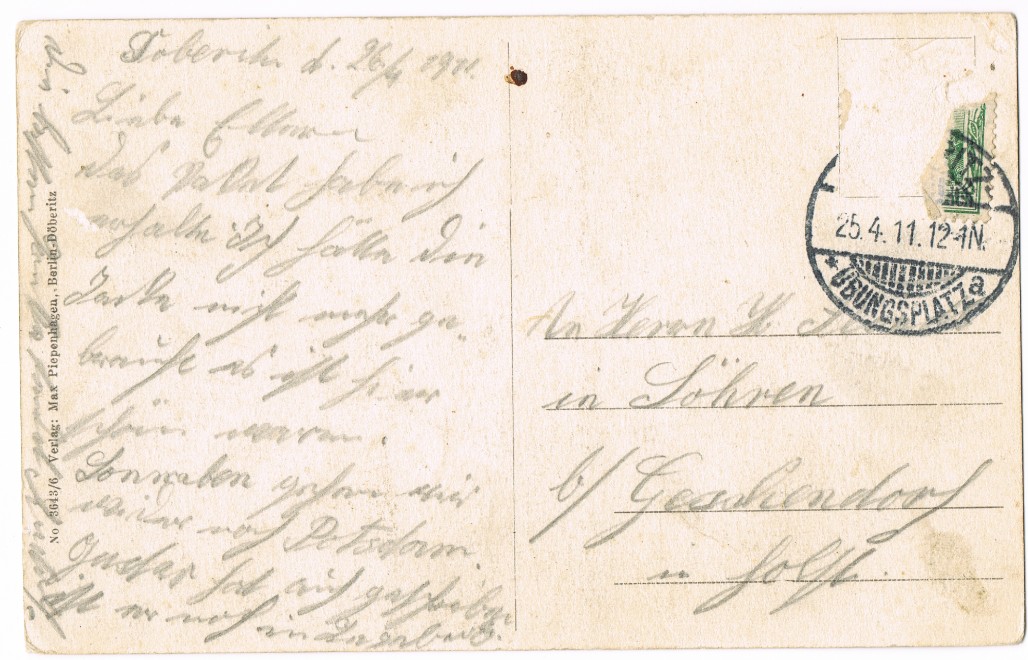 Döberitz d. 26/4 1911.
Liebe Eltern
das Paket habe ich
erhalte Ich hätte die
Jacke nicht mehr ge-
braucht es ist hier
schön warm.
Sonnaben gehen wir
wieder nach Potsdam.
Gustav hat auch geschrieben
ist er noch in Segeberg.
No 3643/6 Verlag: Max Piepenhagen, Berlin-Döberitz
25.4.11.12-1N.
* ÜBUNGSPLATZ a
An Herrn H.
in Söhren
b/ Geschendorf
in Holst.